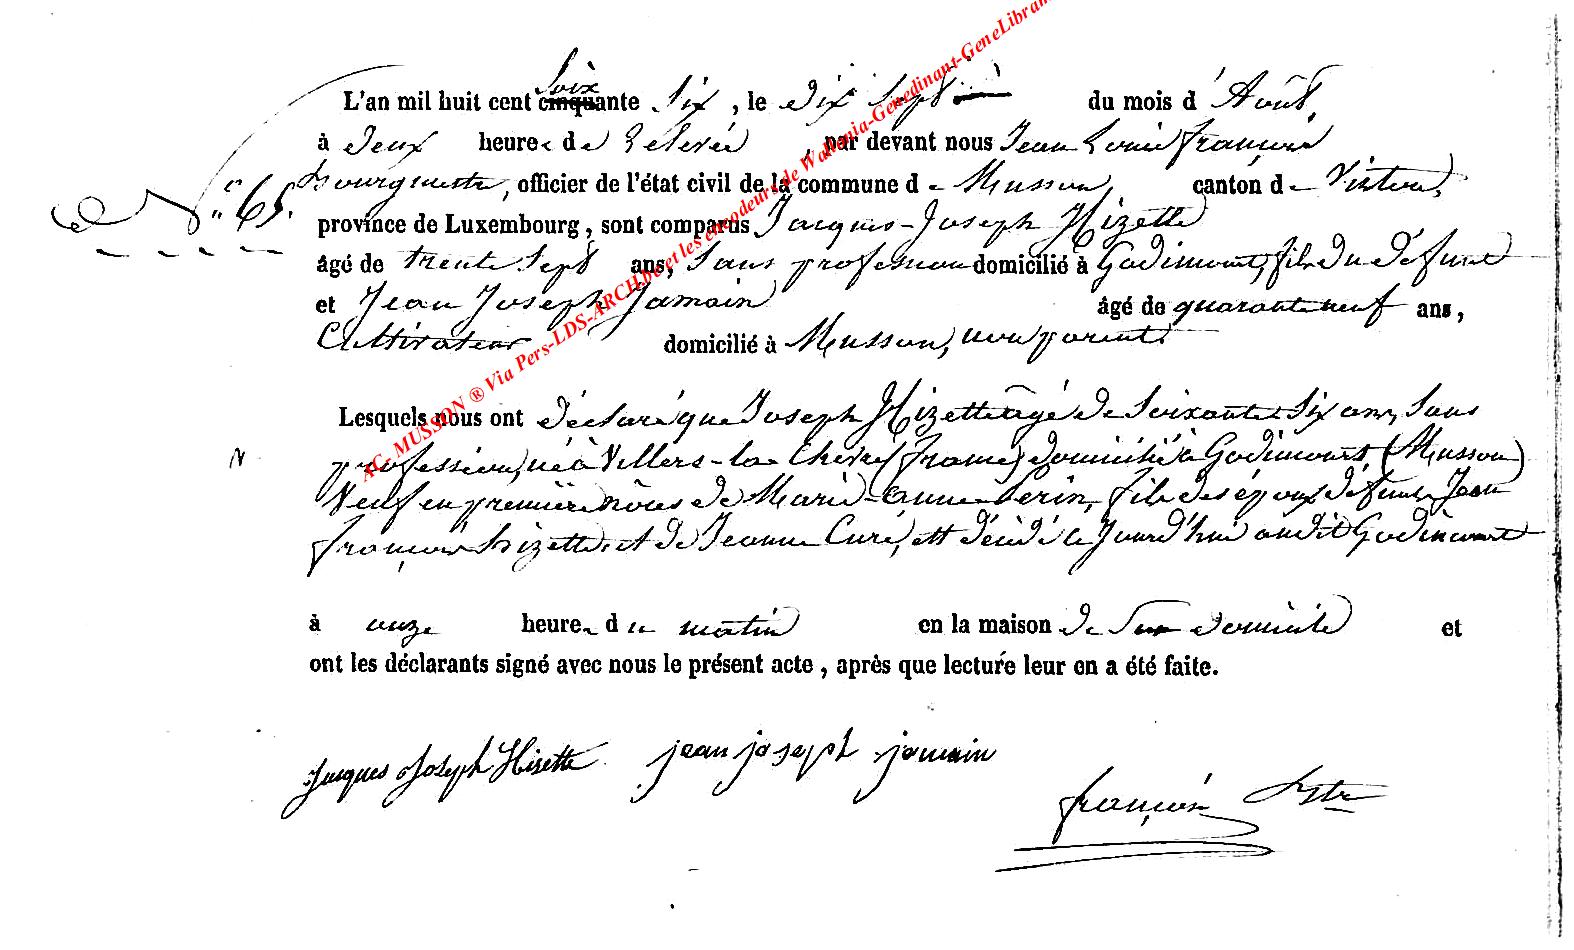 Soix
L'an mil huit cent cinquante Six, le dix Sept du mois d'Août,
à deux heures de relevée, par devant nous Jean Louis françois
Bourgmestre, officier de l'état civil de la commune de Musson, canton de Virton,
N° 65.
province de Luxembourg, sont comparus Jacques-Joseph Hizette
âgé de trente Sept ans, Sans profession domicilié à Godimcourt, fils du défunt
et Jean Joseph Jamain âgé de quarante neuf ans,
Cultivateur domicilié à Musson, non parent.
Lesquels nous ont déclaré que Joseph Hizette âgé de Soixante Six ans, Sans
N
profession, né à Villers-la Chèvre (france) domicilié à Godimcourt, (Musson)
Veuf en première nôces de Marie-Anne Perin, fils des époux défunts Jean
françois hizette, et de Jeanne Curé, est décédé ce Jourd'hui audit Godimcourt
à onze heures du matin en la maison de Son domicile et
ont les déclarants signé avec nous le présent acte, après que lecture leur en a été faite.
Jacques Joseph Hisette jean joseph jamain
françois Bstre
AC- MUSSON ® Via Pers-LDS-ARCH.be et les encodeurs de Wallonia-Genedinant-GeneLibran